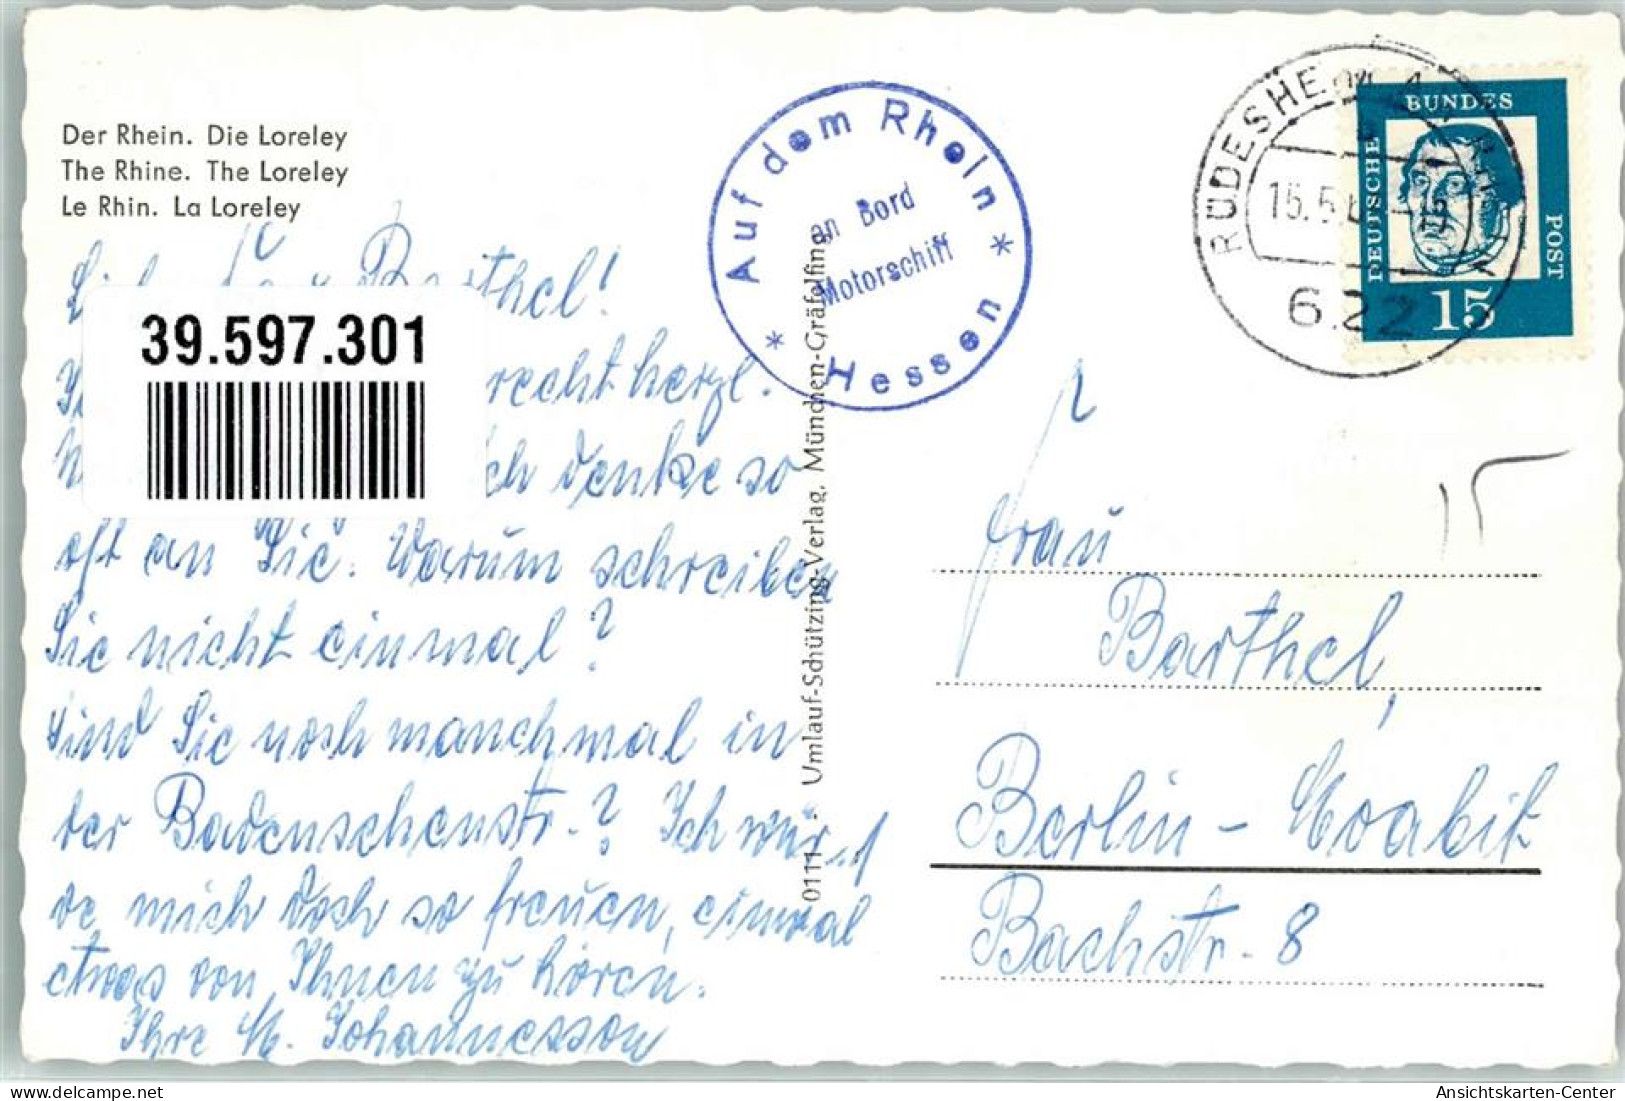 Der Rhein. Die Loreley
The Rhine. The Loreley
Le Rhin. La Loreley
Barthel!
39.597.301
recht herzl.
denke so
oft an Sie. Warum schreiben
Sie nicht einmal?
Sind Sie noch manchmal in
der Badenschenstr.? Ich wür
de mich doch so freuen, einmal
etwas von Ihnen zu hören.
Ihre M. Johannesson
0111 Umlauf-Schützing-Verlag, München-Gräfelfing
Auf dem Rhein
an Bord
Motorschiff
* Hessen *
RÜDESHEIM
15.5.
6.22
BUNDES
DEUTSCHE
POST
15
15
Frau
Barthel,
Berlin-Moabit
Bachstr. 8
Ansichtskarten-Center